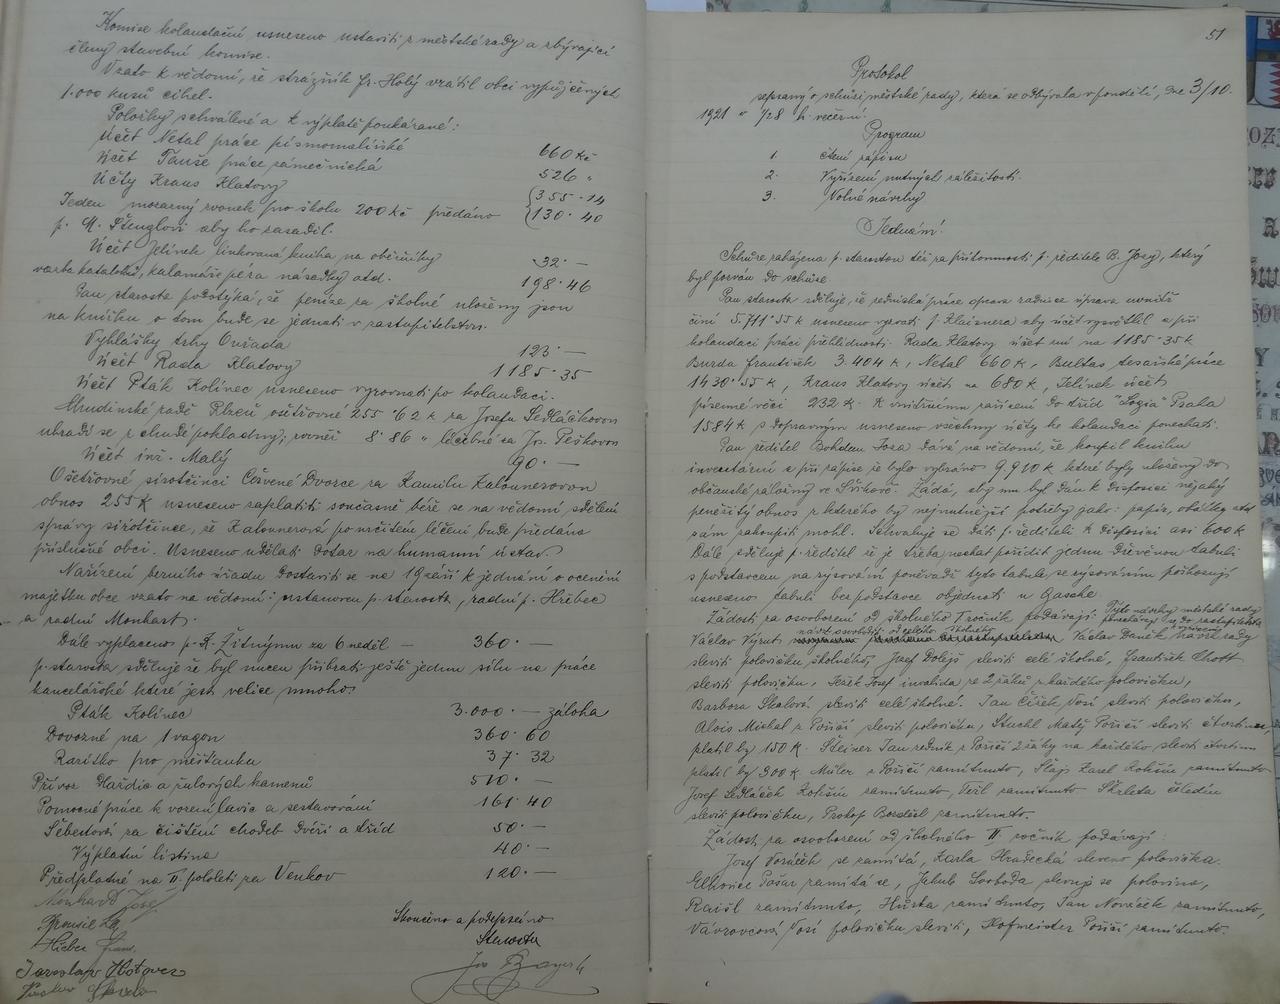 Komise kolaudační usneseno ustaviti z městské rady a zbývající
členy stavební komise.
Vzato k vědomí, že strážník Fr. Holý vrátil obci vypůjčených
1.000 kusů cihel.
Položky schválené a k výplatě poukázané:
Účet Netal práce písmomalířské 660 Kč
Účet Tauše práce zámečnická 526 „
Účty Kraus Klatovy {355·14
Jeden mosazný zvonek pro školu 200 Kč předáno {130·40
p. M. Štenglovi aby ho zasadil.
Účet Jelínek linkovaná kniha na obědníky 32·—
vazba katalogů, kalamáře pera násadky atd. 198·46
Pan starosta podotýká, že peníze za školné uloženy jsou
na knížku o tom bude se jednati v zastupitelstvu.
Vyhlášky trhy Ouřada 123·—
Účet Rada Klatovy 1185·35
Účet Pták Kolinec usneseno vyrovnati po kolaudaci.
Chudinské radě Plzeň ošetřovné 255·62 k za Josefu Sedláčkovou
uhradí se z chudé pokladny, rovněž 8·86 „ léčebné za Jos. Peškovou
Účet inž. Malý 90·—
Ošetřovné sirotčinci Červené Dvorce za Kamilu Kalounerovou
obnos 255 K usneseno zaplatiti současně béře se na vědomí sdělení
správy sirotčince, že Kalounerová po určitém léčení bude předána
příslušné obci. Usneseno udělati dotaz na humanní ústav.
Nařízení berního úřadu dostaviti se na 19 září k jednání o ocenění
majetku obce vzato na vědomí: ustanoven p. starosta, radní p. Hřebec
a radní Monhart.
Dále vyplaceno p. R. Žitnýmu za 6 neděl — 360·—
p. starosta sděluje že byl nucen přibrati ještě jednu sílu na práce
kancelářské které jest velice mnoho.
Pták Kolinec 3.000·— záloha
Dovozné na 1 vagon 360·60
Razítko pro měšťanku 37·32
Přívoz Hardio a žulových kamenů 510·—
Pomocné práce k vození, lavic a sestavování 161·40
Šebestová za čištění chodeb dvéří a tříd 50·—
Výplatní listina 40·—
Předplatné na II. pololetí za Venkov 120·—
Monhardt Josef
Skončeno a podepsáno
Hřebec Frant.
Starosta
Jaroslav Hotovec
51
Protokol
sepsaný o schůzi městské rady, která se odbývala v pondělí, dne 3/10.
1921 o 1/28 h. večerní.
Program
1. čtení zápisu
2. Vyřízení nutných záležitostí.
3. Volné návrhy
Jednání:
Schůze zahájena p. starostou též za přítomnosti p. ředitele B. Josy, který
byl pozván do schůze.
Pan starosta sděluje, že zednická práce oprava radnice úprava uvnitř
činí 5.711·55 k usneseno vyzvati p. Klaisnera aby účet vysvětlil a při
kolaudaci práci přehlédnosti. Rada Klatovy účet zní na 1185·35 k
Burda František 3.404 k, Netal 660 k, Bultas tesařské práce
1430·55 k, Kraus Klatovy účet na 680 k, Jelínek účet
písemné věci 232 k. K vnitřnímu zařízení do tříd "Logia" Praha
1584 k s dopravným usneseno všechny účty ke kolaudaci ponechati.
Pan ředitel Bohdem Josa dává na vědomí, že koupil knihu
inventární a při zápise je bylo vybráno 9.910 k které byly uloženy do
občanské záložny ve Sušici. Žádá, aby mu byl dán k disposici nějaký
peněžitý obnos z kterého by nejnutnější potřeby jako: papír, obálky atd
sám zakoupiti mohl. Schvaluje se dáti p. řediteli k disposici asi 600 k
Dále sděluje p. ředitel že je třeba nechat pořídit jednu dřevěnou tabuli
s podstavcem na rýsování poněvadž tyto tabule se rýsováním poškozují
usneseno tabuli bez podstavce objednati u Gasche.
Žádosti za osvobození od školného I ročník podávají: Tyto návrhy městské rady
Václav Výrut Václav Daněk návrh rady
sleviti polovičku školného, Josef Dolejš sleviti celé školné, František Chott
sleviti polovičku, Ježek Josef invalida ze 2 žáků z každého polovičku,
Barbora Skalová sleviti celé školné. Jan Čížek Vosí sleviti polovičku,
Alois Michal z Poříčí sleviti polovičku, Stuchl Matěj Poříčí sleviti čtvrtinu,
platil by 150 k. Šteiner Jan řezník z Poříčí 2 žáky na každého sleviti čtvrtinu
platil by 300 k. Müler z Poříčí zamítnuto, Šlajs Karel Kohšín zamítnuto
Josef Sedláček Kohšín zamítnuto, Težil zamítnuto Škrleta čeledín
sleviti polovičku, Prokop Borděšl zamítnuto.
Žádosti za osvobození od školného II. ročník podávají:
Josef Voráček se zamítá, Karla Hradecká sleveno polovička.
Elhovice Pošar zamítá se, Jakub Svoboda slevuje se polovina,
Raišl zamítnuto, Hůrka zamítnuto, Jan Nováček zamítnuto,
Vávrovcová Vosí polovičku sleviti, Hofmeister Poříčí zamítnuto.